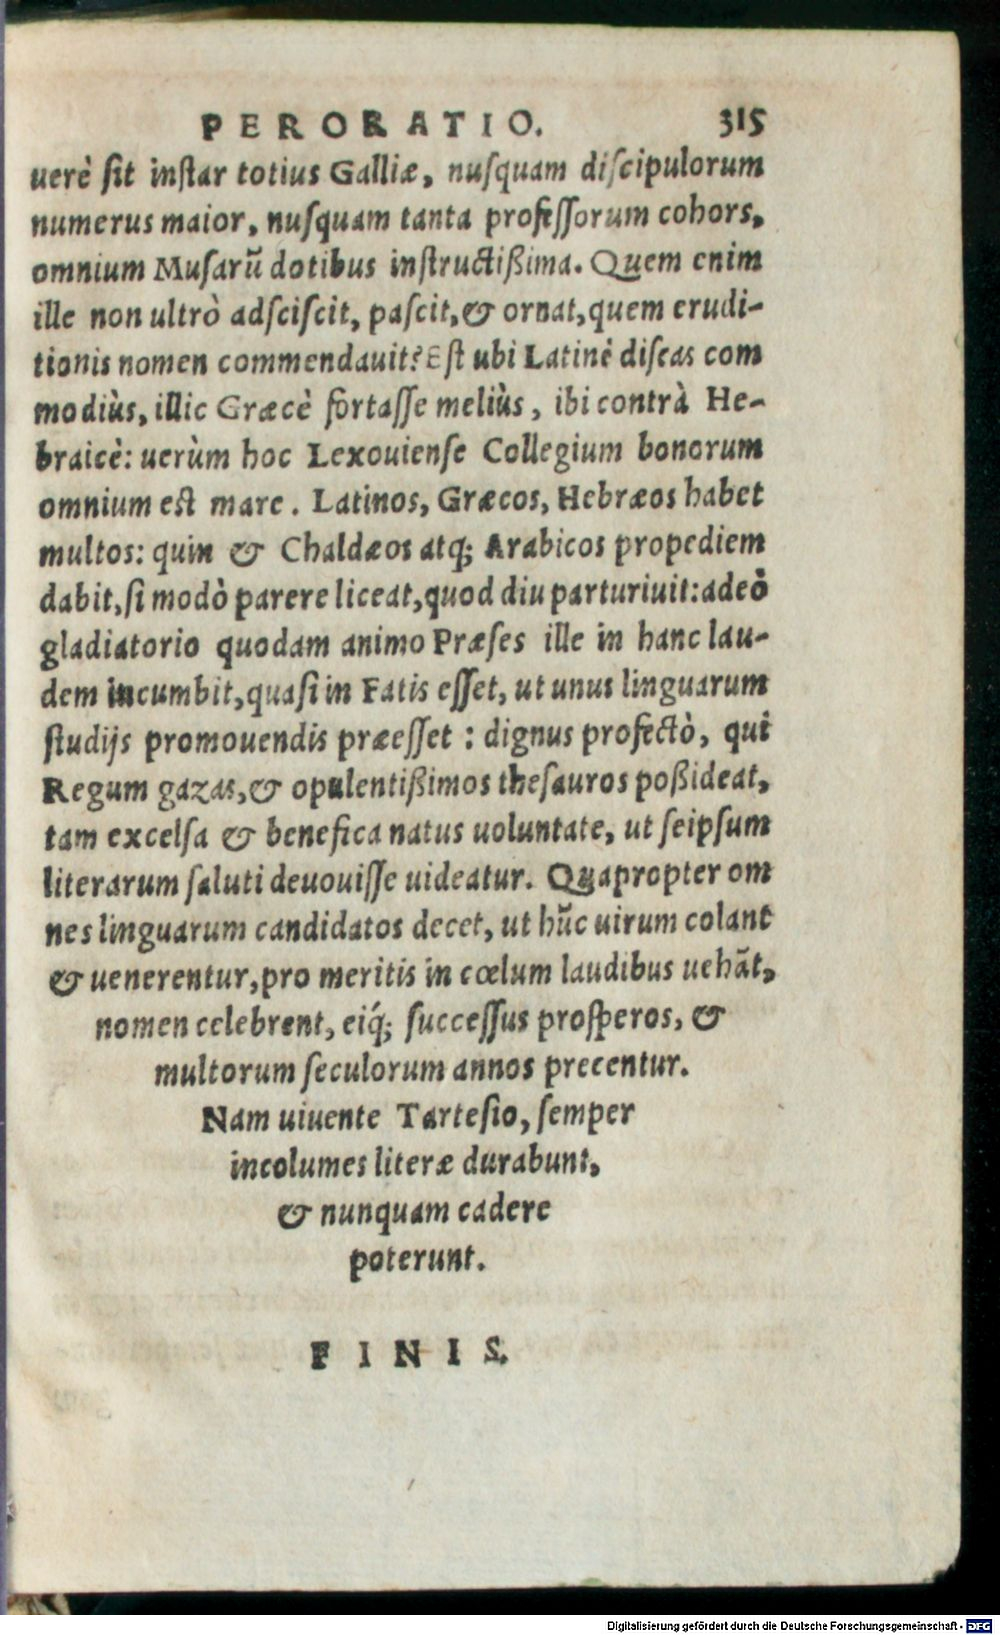 PERORATIO. 315
uerè ſit inſtar totius Galliæ, nuſquam diſcipulorum
numerus maior, nuſquam tanta profeſſorum cohors,
omnium Muſarũ dotibus inſtructißima. Quem enim
ille non ultrò adſciſcit, paſcit, & ornat, quem erudi-
tionis nomen commendauit? Eſt ubi Latinè diſcas com
modiùs, illic Græcè fortaſſe meliùs, ibi contrà He-
braicè: uerùm hoc Lexouienſe Collegium bonorum
omnium eſt mare. Latinos, Græcos, Hebræos habet
multos: quin & Chaldæos atq; Arabicos propediem
dabit, ſi modò parere liceat, quod diu parturiuit: adeò
gladiatorio quodam animo Præſes ille in hanc lau-
dem incumbit, quaſi in Fatis eſſet, ut unus linguarum
ſtudijs promouendis præeſſet: dignus profectò, qui
Regum gazas, & opulentißimos theſauros poßideat,
tam excelſa & benefica natus uoluntate, ut ſeipſum
literarum ſaluti deuouiſſe uideatur. Quapropter om
nes linguarum candidatos decet, ut hũc uirum colant
& uenerentur, pro meritis in cœlum laudibus uehãt,
nomen celebrent, eiq́; ſucceſſus proſperos, &
multorum ſeculorum annos precentur.
Nam uiuente Tarteſio, ſemper
incolumes literæ durabunt,
& nunquam cadere
poterunt.
FINIS.
Digitalisierung gefördert durch die Deutsche Forschungsgemeinschaft - DFG